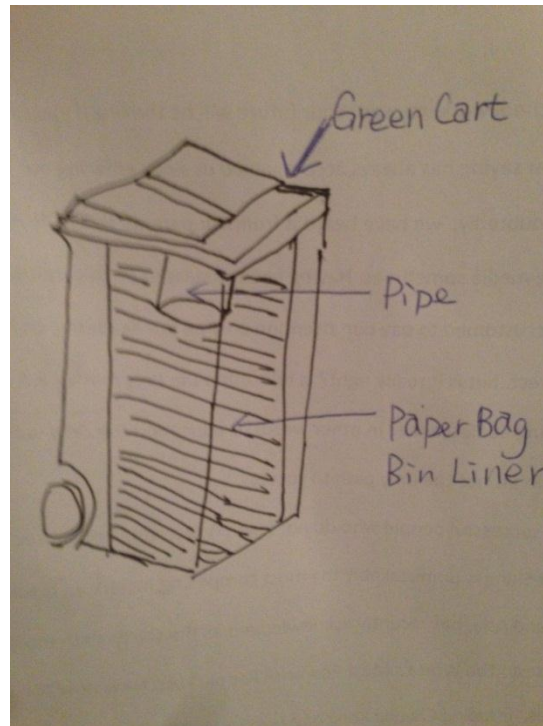 Green Cart
Pipe
Paper Bag
Bin Liner